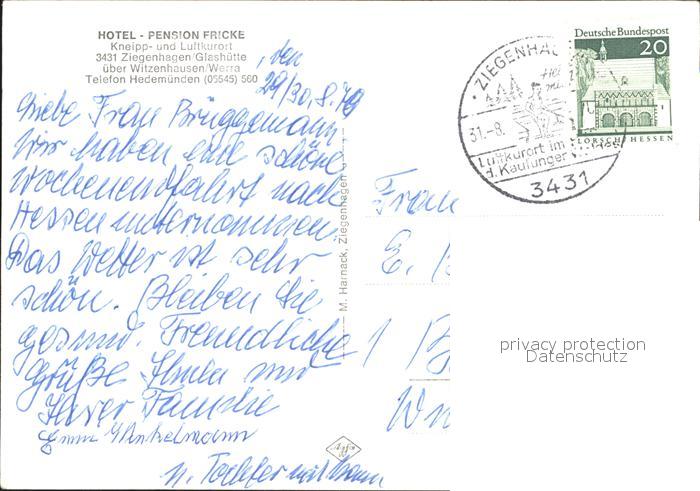 HOTEL - PENSION FRICKE
Kneipp- und Luftkurort
3431 Ziegenhagen/Glashütte
über Witzenhausen/Werra
Telefon Hedemünden (05545) 560
, den
29/30.8.70
Liebe Frau Brüggemann
Wir haben eine schöne
Wochenendfahrt nach
Hessen unternommen.
Das Wetter ist sehr
schön. Bleiben Sie
gesund. Freundliche
Grüße Ihnen und
Ihrer Familie
Winkelmann
u. Tochter
M. Harnack, Ziegenhagen
ZIEGENHA
31.-8.
Luftkurort im
d. Kaufunger
3431
Deutsche Bundespost
20
LORSCH/HESSEN
Frau
E. B
1 B
privacy protection
Datenschutz